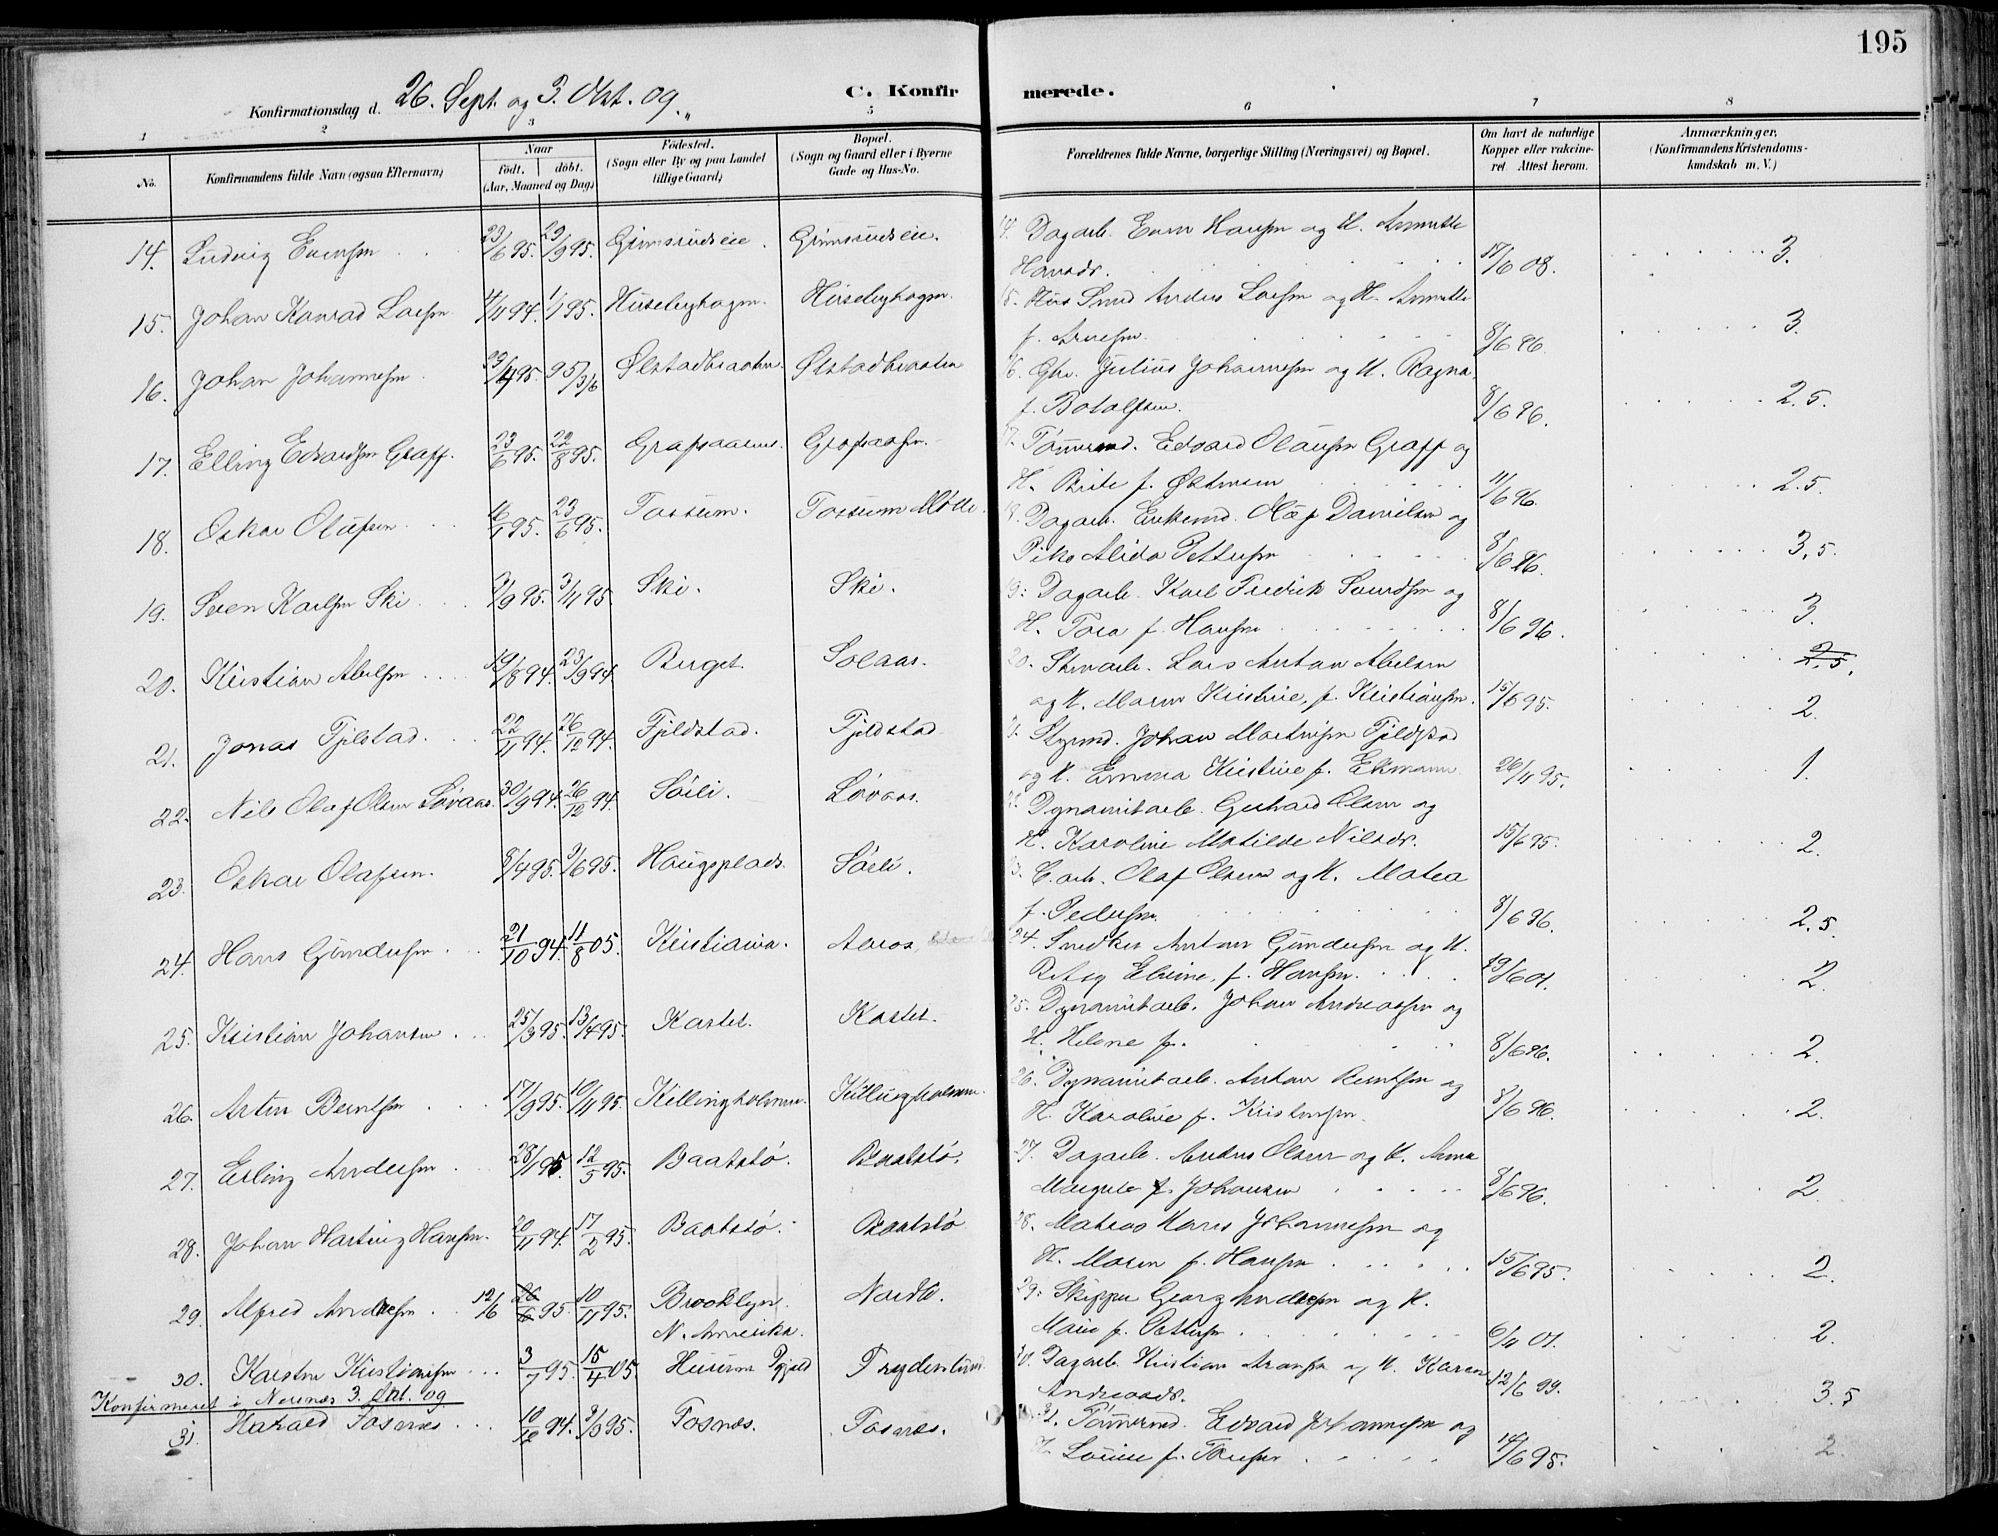 195
Konfirmationsdag d. 26. Sept. og 3. Okt. 09.
C. Konfirmerede.
1 2 3 5 6 7 8
No.
Konfirmandens fulde Navn (ogsaa Efternavn)
Naar
født. døbt.
(Aar, Maaned og Dag)
Fødested.
(Sogn eller By og paa Landet
tillige Gaard)
Bopæl.
(Sogn og Gaard eller i Byerne
Gade og Hus-No.
Forældrenes fulde Navne, borgerlige Stilling (Næringsvei) og Bopæl.
Om havt de naturlige
Kopper eller vakcine-
ret. Attest herom.
Anmærkninger.
(Konfirmandens Kristendoms-
kundskab m. V.)
14. Ludvig Evensen 23/6 95. 29/9 95. Gimsrudseie. Gimsrudseie.
14. Dagarb. Even Hansen og H. Annette
Hansdr. 17/6 08. 3.
15. Johan Konrad Larsen 4/11 94. 1/1 95. Huseby Husebyhagen.
15. Anders Larsen og H. Annette
f. Arnesen. 8/6 96. 3.
16. Johan Johannesen 23/4 95. 95 3/6 Ølstadbraaten. Ølstadbraaten
16. Julius Johannesen og H. Ragna
f. Botolfsen. 8/6 96. 2.5.
17. Elling Edvardsen Graff. 23/6 95. 22/8 95.
17. Tømmermd. Edvard Olausen Graff og
H. Berte f. Østensen 11/6 96. 2.5.
18. Oskar Olafsen 16/1 95. 23/6 95. Tossum. Tossum Mølle.
18. Dagarb. Enkemd. Olaf Danielsen og
Pike Alida Pettersen 8/6 96. 3,5.
19. Søren Karlsen Ski 9/9 95. 3/11 95. Ski. Ski.
19. Dagarb. Karl Fredrik og
H. Tora f. Hansen 8/6 96. 3.
20. Kristian Abelsen 19/8 94. 23/9 94. Berget. Solaas.
20. Stenarb. Lars Anton Abelsen
og H. Maren Kristine, f. Kristiansen. 15/6 95. 2.5.
21. Jonas Fjeldstad. 22/11 94. 26/12 94. Fjeldstad. Fjeldstad
21. Styrmd. Johan Martinsen Fjeldstad
og H. Emma Kristine f. Ekmann 26/11 95. 2. 1.
22. Nils Olaf Olsen Løvaas. 30/9 94. 26/12 94. Søili. Løvaas.
22. Dynamitarb. Gerhard Olsen og
H. Karoline Matilde Nilsdr. 15/6 95. 2.
23. Oskar Olafsen. 8/4 95. 9/6 95. Haugsplads. Søili.
23. E. arb. Olaf Olsen og H. Matea
f. Pedersen 8/6 96. 2.5.
24. Hans Gundersen 21/10 94. 11/8 05. Kristiania. Aaros
24. Snedker Anton Gundersen og H.
Betsy Elvine, f. Hansen. 19/6 01. 2.
25. Kristian Johansen 25/3 95. 13/4 95. Kastet. Kastet.
25. Dynamitarb. Johan Andreassen og
H. Helene f. 8/6 96. 2.
26. Arten Berntsen 17/9 95. 10/11 95. Killingholmen. Killingholmen.
26. Dynamitarb. Anton Berntsen og
H. Karoline f. Kristensen. 8/6 96. 2.
27. Erling Andersen 28/1 95. 12/5 95. Baatstø. Baatstø.
27. Dagarb. Anders Olsen og H. Anna
Margrete f. Johansen 8/6 96. 2.
28. Johan Harting Hansen. 20/11 94. 17/2 95. Baatstø. Baatstø
28. Matros Hans Johannesen og
H. Maren f. Hansen 15/6 95. 2.
29. Alfred Andersen. 12/6 26/6 95. 10/11 95. Brooklyn. Nordbø.
N. Amerika.
29. Skipper Georg Andersen og H.
Marie f. Pettersen. 6/11 01. 2.
30. Karsten Kristiansen 3/7 95. 15/4 05. Husum Frydenlund
30. Dagarb. Kristian Aronsen og H. Karen
Andreasdr. 12/6 99. 3.5
Konfirmeret i Nersnes 3. Okt. 09
31. Harald Tosnæs 10/12 94. 9/3 95. Tosnæs. Tosnæs.
31. Tømmermd. Edvard Johannesen og
H. Louise f. 14/6 95. 2.